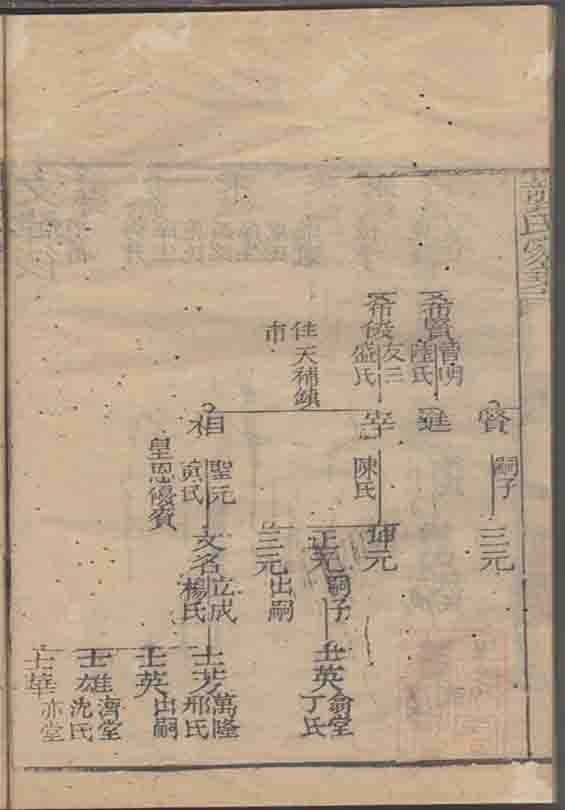 希賢 曾明 陸氏
希俊 友三 盛氏
住天補鎮市
賢 嗣子
進
宰 陳氏
相 聖元 黄氏
皇恩優賚
三元
坤元
正元 嗣子
三元 出嗣
文名 立成 楊氏
士英 翕堂 丁氏
士芳 萬隆 邢氏
士英 出嗣
士雄 濟堂 沈氏
士華 亦堂